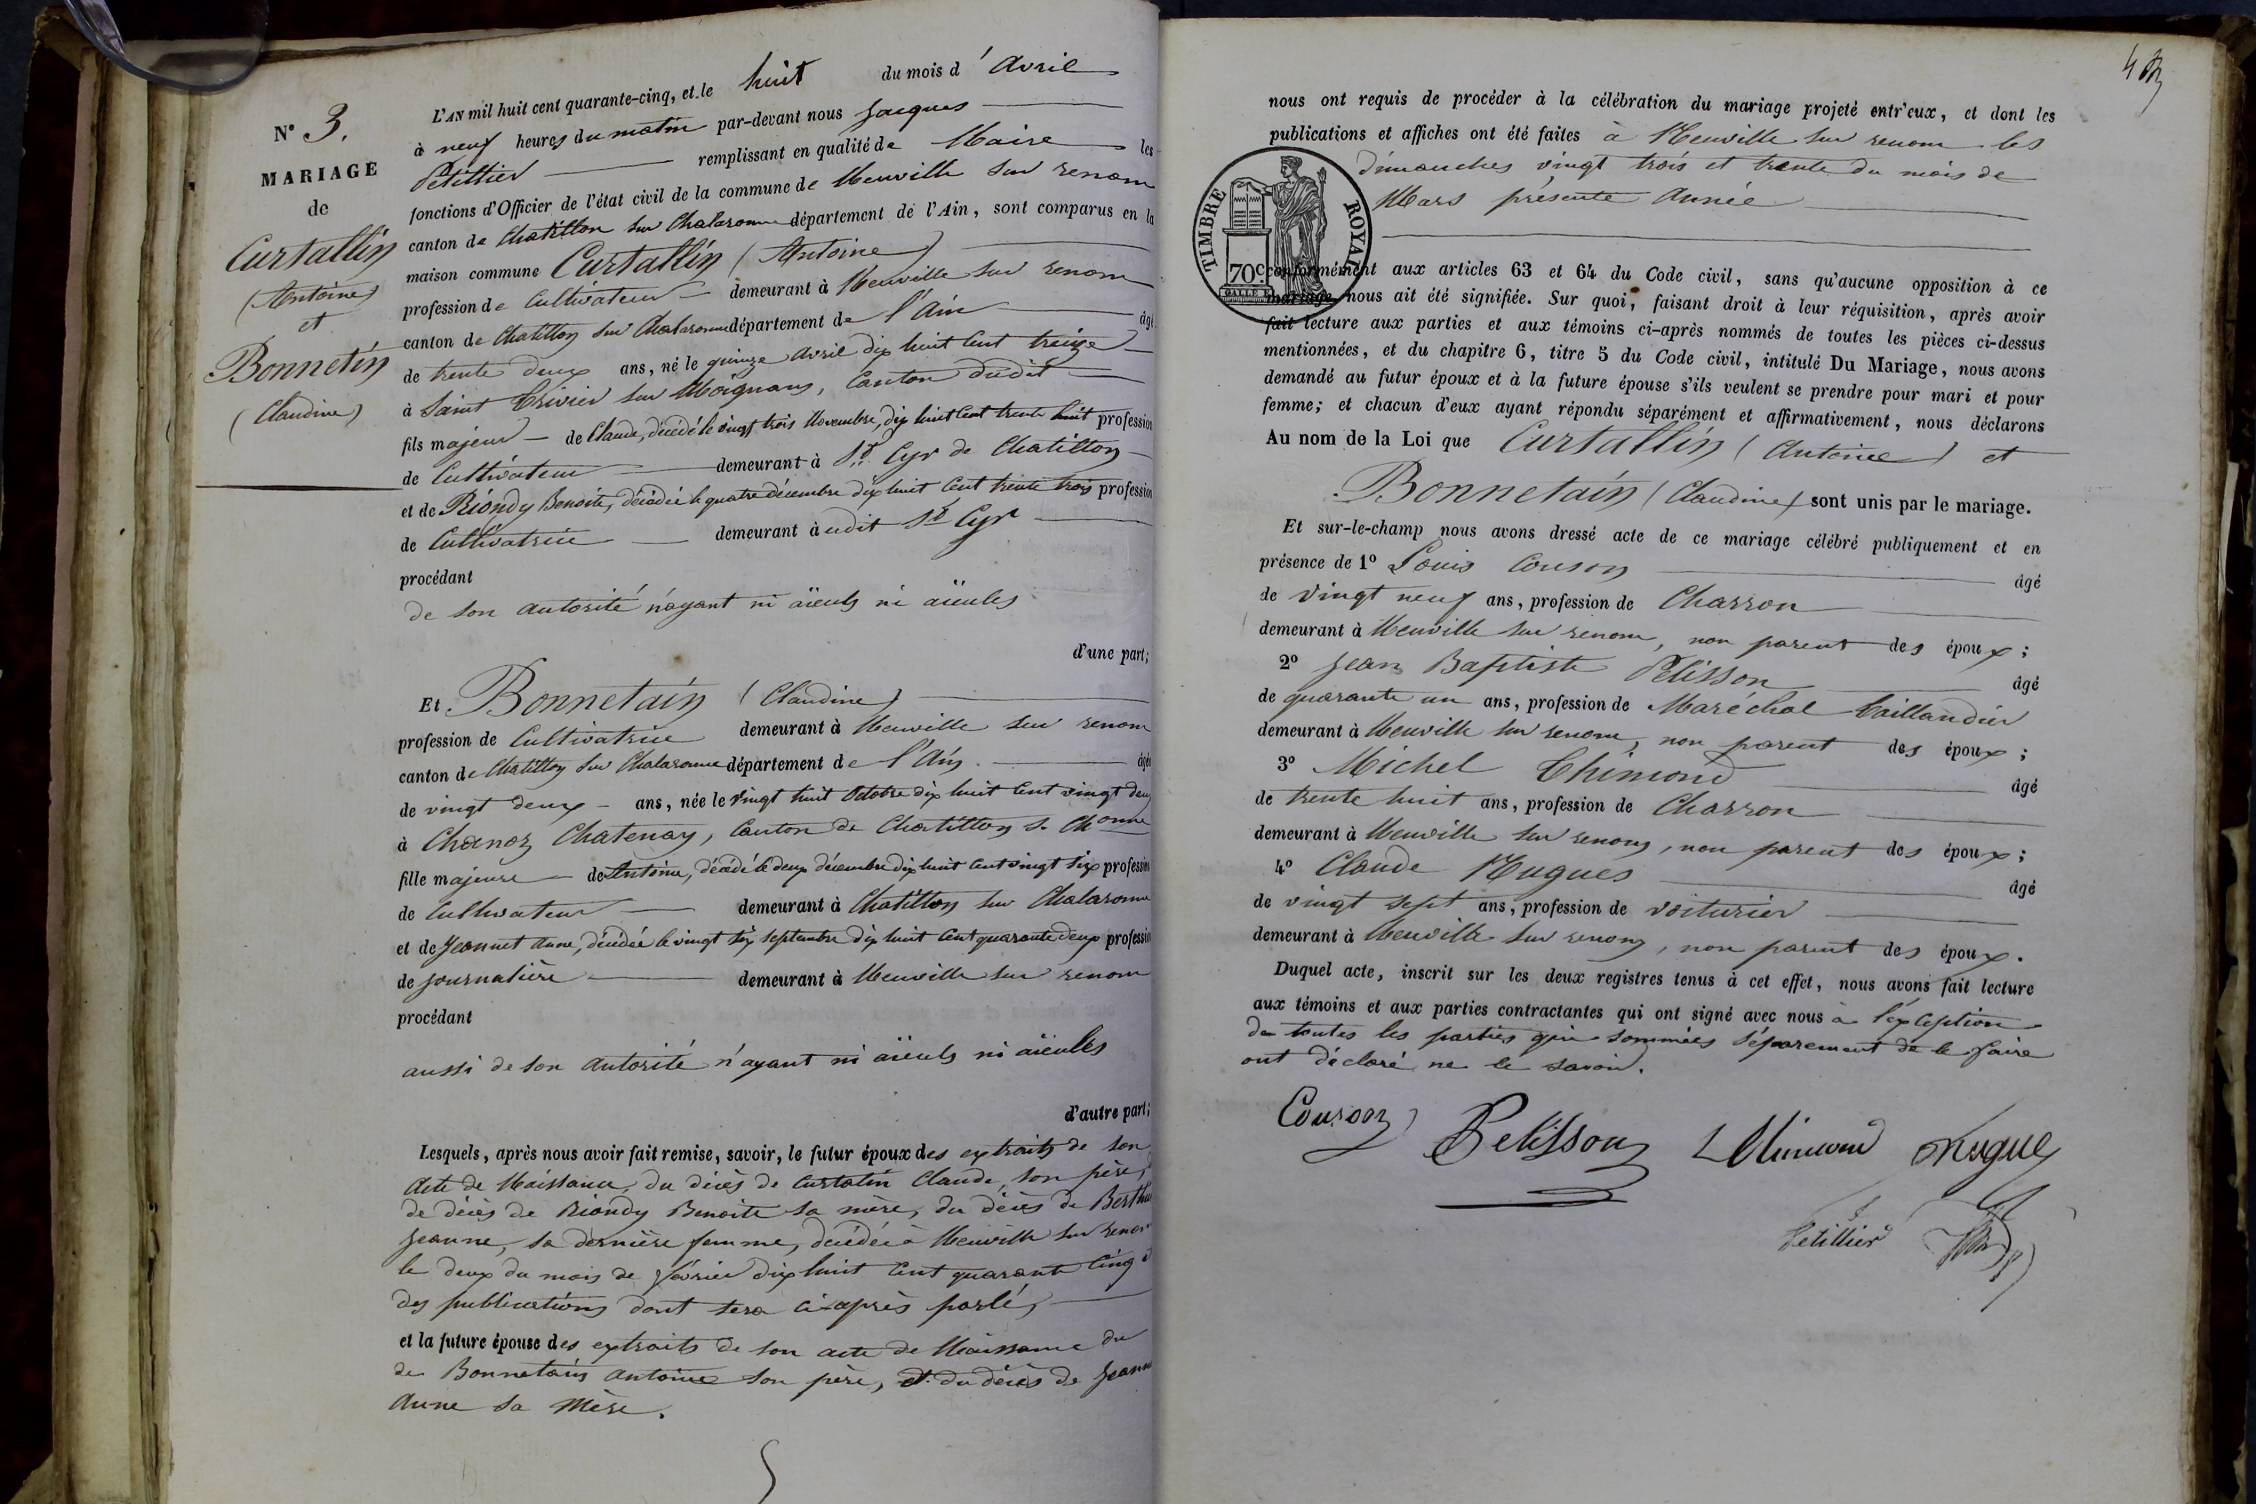 N° 3.
MARIAGE
de
Curtallin
(Antoine)
et
Bonnetin
(Claudine)
L'AN mil huit cent quarante-cinq, et le huit du mois d'Avril
à neuf heures du matin par-devant nous Jacques
Petillier remplissant en qualité de Maire les
fonctions d'Officier de l'état civil de la commune de Neuville sur renom
canton de Chatillon sur Chalaronne département de l'Ain, sont comparus en la
maison commune Curtallin (Antoine)
profession de Cultivateur demeurant à Neuville sur renom
canton de Chatillon sur Chalaronne département de l'Ain âgé
de trente deux ans, né le quinze avril dix huit cent treize
à Saint Trivier sur Moignans, Canton dudit
fils majeur de Claude, décédé le vingt trois Novembre, dix huit cent trente huit profession
de Cultivateur demeurant à St. Cyr de Chatillon
et de Riondy Benoite, décédée le quatre décembre dix huit cent trente trois profession
de Cultivatrice demeurant à udit St Cyr
procédant
de son autorité n'ayant ni aïeuls ni aïeules
d'une part;
Et Bonnetain (Claudine)
profession de Cultivatrice demeurant à Neuville sur renom
canton de Chatillon sur Chalaronne département de l'Ain âgée
de vingt deux ans, née le vingt huit Octobre dix huit cent vingt deux
à Chanoz Chatenay, Canton de Chatillon s. Chonne
fille majeure de Antoine, décédé le deux décembre dix huit cent vingt six profession
de Cultivateur demeurant à Chatillon sur Chalaronne
et de Jeannet Anne, décédée le vingt six septembre dix huit cent quarante deux profession
de journalière demeurant à Neuville sur renom
procédant
aussi de son autorité n'ayant ni aïeuls ni aïeules
d'autre part;
Lesquels, après nous avoir fait remise, savoir, le futur époux des extraits de son
acte de Naissance, du décès de Curtatin Claude, son père,
de décès de Riondy Benoite sa mère, du décès de
Jeanne, sa dernière femme, décédée à Neuville sur renom
le deux du mois de février dix huit cent quarante cinq
des publications dont sera ci-après parlé,
et la future épouse des extraits de son acte de Naissance du
de Bonnetain Antoine son père, et du décès de Jeannet
Anne sa Mère.
nous ont requis de procéder à la célébration du mariage projeté entr'eux, et dont les
publications et affiches ont été faites à Neuville sur renom les
dimanches vingt trois et trente du mois de
Mars présente année
TIMBRE ROYAL
70c
conformément aux articles 63 et 64 du Code civil, sans qu'aucune opposition à ce
mariage nous ait été signifiée. Sur quoi, faisant droit à leur réquisition, après avoir
fait lecture aux parties et aux témoins ci-après nommés de toutes les pièces ci-dessus
mentionnées, et du chapitre 6, titre 5 du Code civil, intitulé Du Mariage, nous avons
demandé au futur époux et à la future épouse s'ils veulent se prendre pour mari et pour
femme; et chacun d'eux ayant répondu séparément et affirmativement, nous déclarons
Au nom de la Loi que Curtallin (Antoine) et
Bonnetain (Claudine) sont unis par le mariage.
Et sur-le-champ nous avons dressé acte de ce mariage célébré publiquement et en
présence de 1° Louis Couson âgé
de vingt neuf ans, profession de Charron
demeurant à Neuville sur renom, non parent des époux;
2° Jean Baptiste Pélisson âgé
de quarante un ans, profession de Maréchal taillandier
demeurant à Neuville sur renom, non parent des époux;
3° Michel Thimond âgé
de trente huit ans, profession de Charron
demeurant à Neuville sur renom, non parent des époux;
4° Claude Hugues âgé
de vingt sept ans, profession de voiturier
demeurant à Neuville sur renom, non parent des époux.
Duquel acte, inscrit sur les deux registres tenus à cet effet, nous avons fait lecture
aux témoins et aux parties contractantes qui ont signé avec nous à l'exception
de toutes les parties qui sommées séparément de le faire
ont déclaré ne le savoir.
Couson Pelisson Thimond Hugue
Petillier